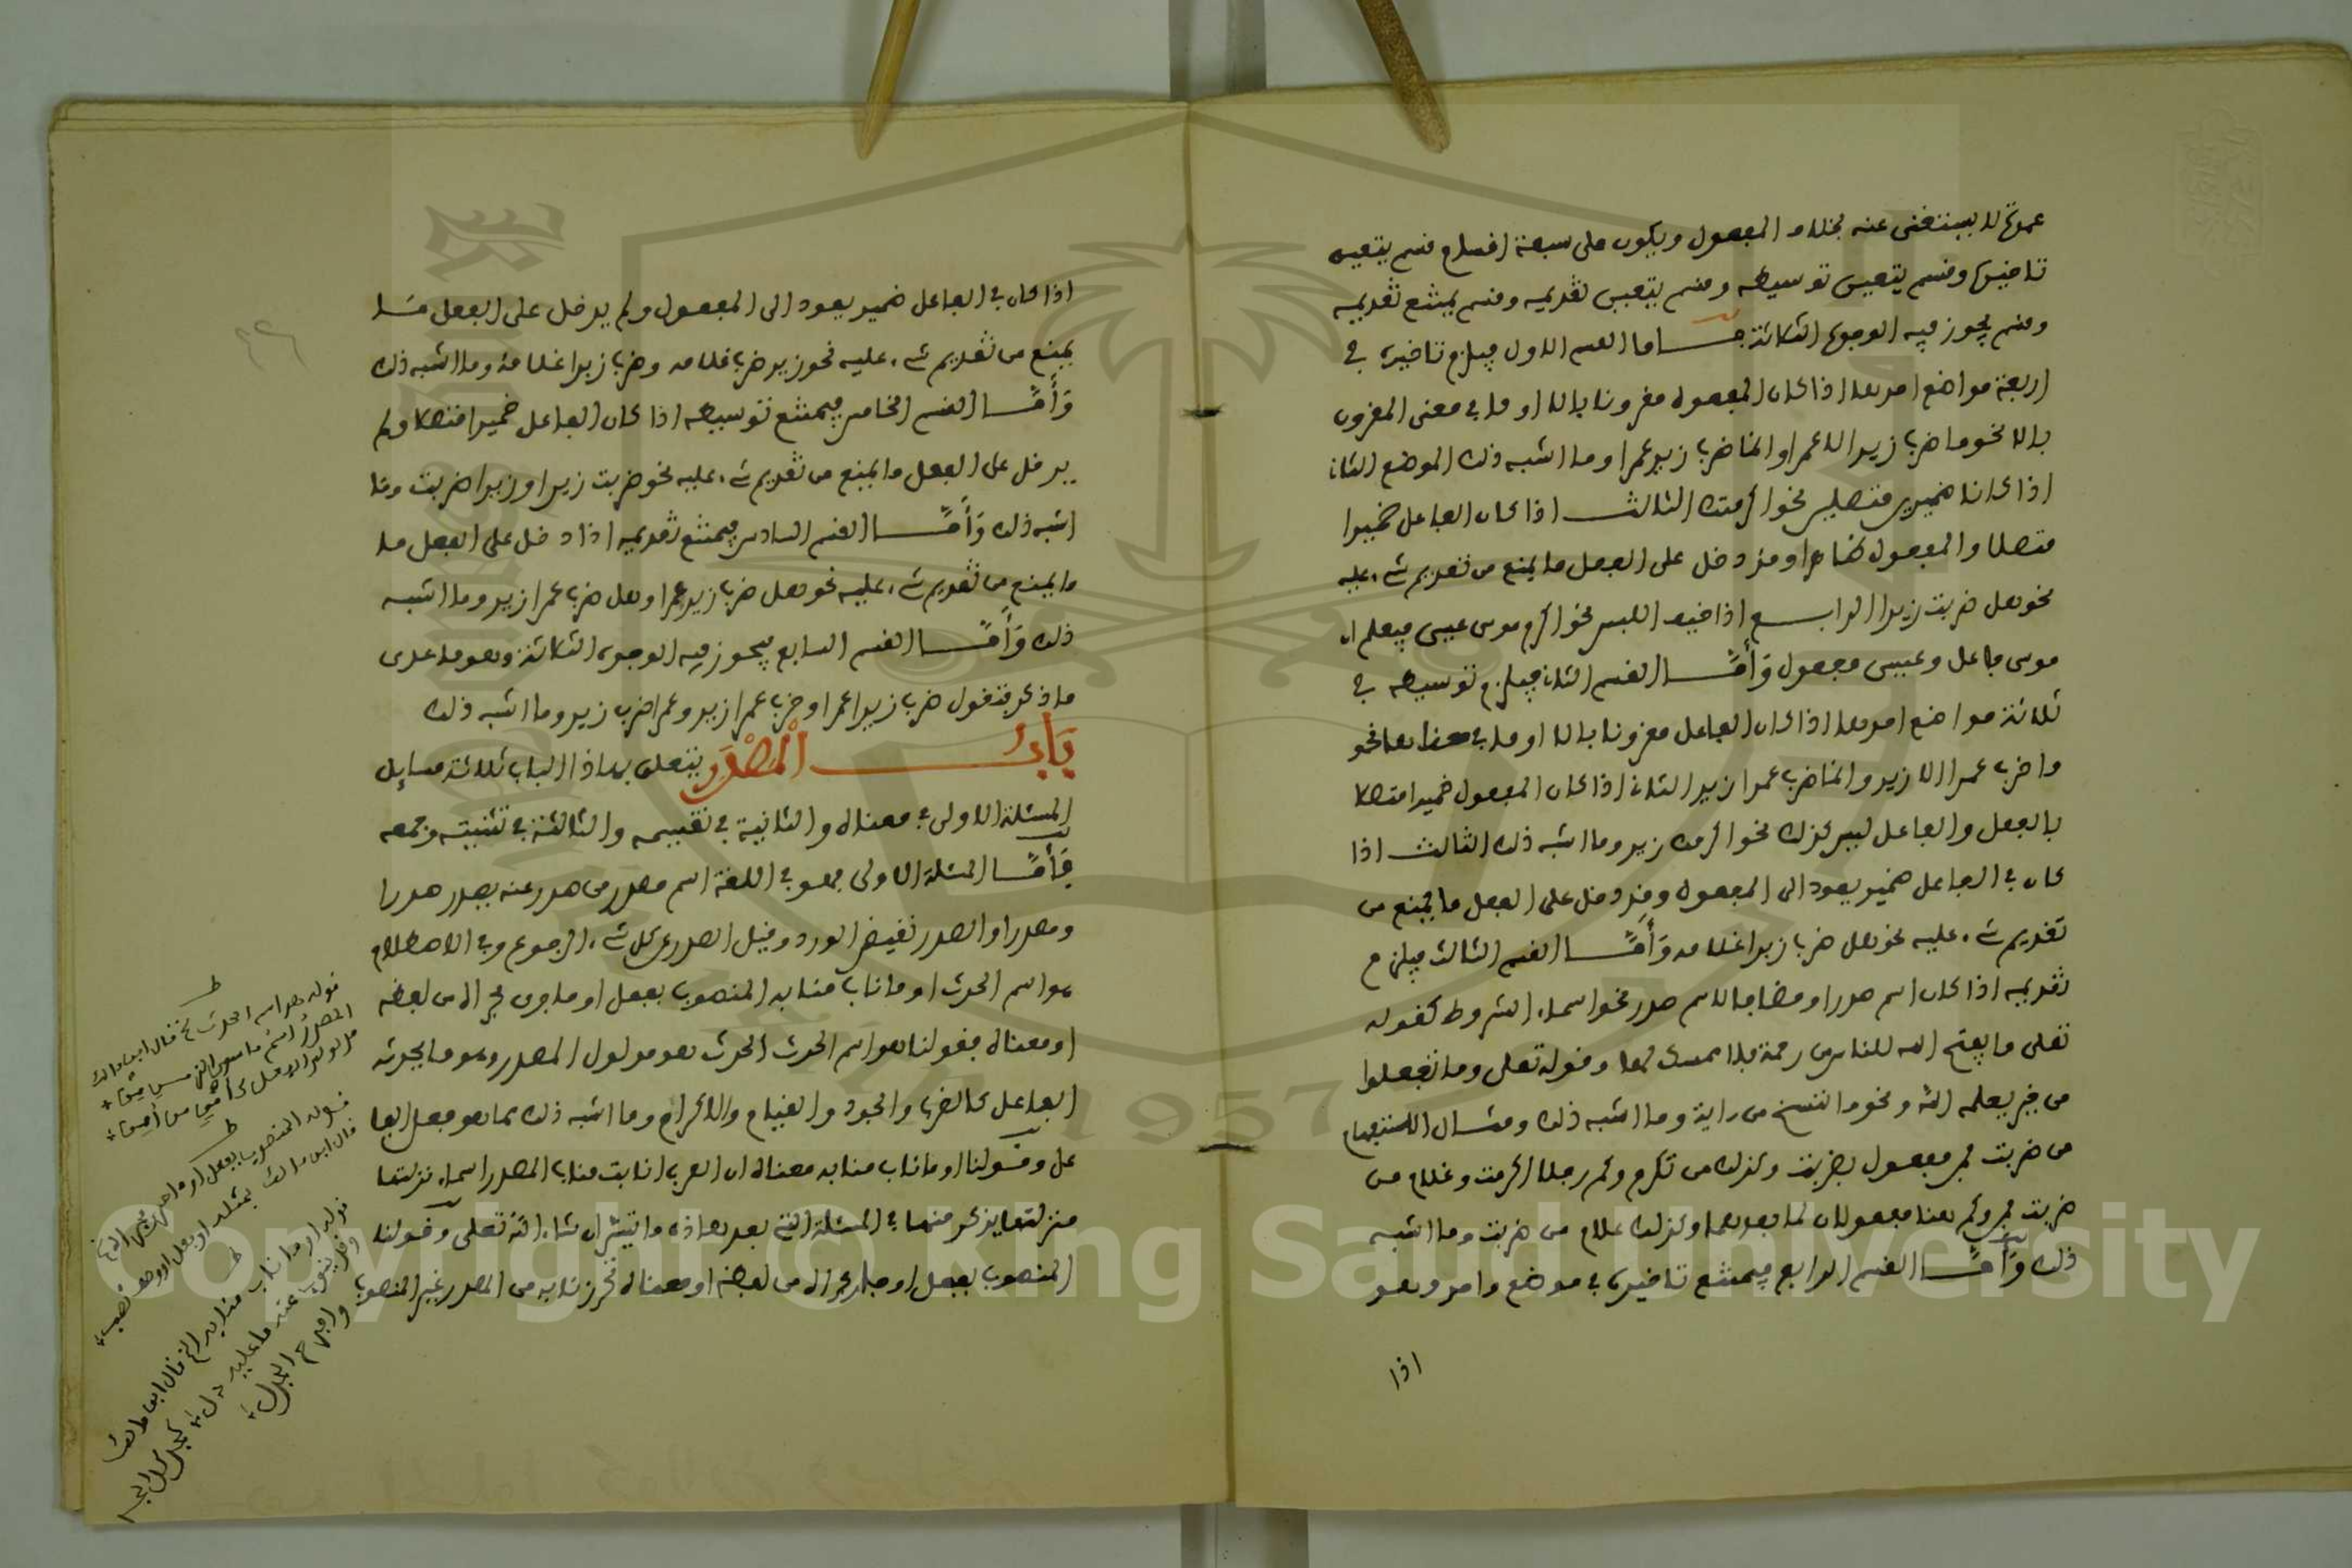 عمدة لا يستغنى عنه بخلاف المفعول ويكون على سبعة اقسام قسم يتعين
تاخيره وقسم يتعين توسيطه وقسم يتعين تقديمه وقسم يمتنع تقديمه
وقسم يجوز فيه الوجوه الثلاثة فاما القسم الاول فيلزم تاخيره في
اربعة مواضع احدها اذا كان المفعول مقرونا بالا او ما في معنى المقرون
بالا نحو ما ضرب زيد الا عمرا وانما ضرب زيد عمرا وما اشبه ذلك الموضع الثان
اذا كانا ضميرين متصلين نحو اكرمتك الثالث اذا كان الفاعل ضميرا
متصلا والمفعول ظاهرا وقد دخل على الفعل ما يمنع من تقديم شيء عليه
نحو هل ضربت زيدا الرابع اذا خيف اللبس نحو اكرم موسى عيسى فيعلم ان
موسى فاعل وعيسى مفعول وَأَمَّا القسم الثان فيلزم توسيطه في
ثلاثة مواضع احدها اذا كان الفاعل مقرونا بالا او ما في معناها نحو
ما ضرب عمرا الا زيد وانما ضرب عمرا زيد الثان اذا كان المفعول ضميرا متصلا
بالفعل والفاعل ليس كذلك نحو اكرمك زيد وما اشبه ذلك الثالث اذا
كان في الفاعل ضمير يعود الى المفعول وقد دخل على الفعل ما يمنع من
تقديم شيء عليه نحو هل ضرب زيدا غلامه وَأَمَّا القسم الثالث فيلزم
تقديمه اذا كان اسم صدر او مضافا لاسم صدر نحو اسماء الشروط كقوله
تعلى ما يفتح الله للناس من رحمة فلا ممسك لها وقوله تعلى وما تفعلوا
من خير يعلمه الله ونحو ما ننسخ من ءاية وما اشبه ذلك ومثال الاستفهام
من ضربت فمن مفعول بضربت وكذلك من تكرم وكم رجلا اكرمت وغلام من
ضربت فمن وكم هنا مفعولان لما بعدهما وكذلك غلام من ضربت وما اشبه
ذلك وَأَمَّا القسم الرابع فيمتنع تاخيره في موضع واحد وهو
اذا
اذا كان في الفاعل ضمير يعود الى المفعول ولم يدخل على الفعل مَا
يمنع من تقديم شيء عليه نحو زيد ضرب غلامه وضرب زيدا غلامه وما اشبه ذلك
وَأَمَّا القسم الخامس فيمتنع توسيطه اذا كان الفاعل ضميرا متصلا ولم
يدخل على الفعل ما يمنع من تقديم شيء عليه نحو ضربت زيدا وزيدا ضربت وما
اشبه ذلك وَأَمَّا القسم السادس فيمتنع تقديمه اذا دخل على الفعل ما
ما يمنع من تقديم شيء عليه نحو هل ضرب زيد عمرا وهل ضرب عمرا زيد وما اشبه
ذلك وَأَمَّا القسم السابع فيجوز فيه الوجوه الثلاثة وهو ما عدى
ما ذكر فتقول ضرب زيد عمرا وضرب عمرا زيد وعمرا ضرب زيد وما اشبه ذلك
بَابُ الْمَصْدَرِ يتعلق بهاذا الباب ثلاثة مسايل
المسئلة الاولى في معناه والثانية في تقسيمه والثالثة في تثنيته وجمعه
فَأَمَّا المسئلة الاولى فهو في اللغة اسم مصدر من صدر عنه يصدر صدرا
ومصدرا والصدر نقيض الورد وقيل الصدر عن كل شيء الرجوع وفي الاصطلام
هو اسم الحدث او ما ناب منابه المنصوب بفعل او ما جرى مجراه من لفظه
او معناه فقولنا هو اسم الحدث الحدث هو مدلول المصدر وهو ما يحدثه
الفاعل كالضرب والجود والقيام والاكرام وما اشبه ذلك مما هو فعل الفا
عل وقولنا او ما ناب منابه معناه ان العرب انابت مناب المصدر اسماء نزلتها
منزلتها يذكر منها في المسئلة التي بعد هاذه ما تيسر ان شاء الله تعلى وقولنا
المنصوب بفعل او جار مجراه من لفظه او معناه تحرز نابه من المصدر غير المنصوب
قوله هو اسم الحدث الخ قال ابن مالك
المصدر اسم ما سوى الزمان من
مدلولي الفعل كأمن من أمن
قوله المنصوب بفعل او ما جرى مجراه الخ
قال ابن مالك بمثله او فعل او وصف نصب
قوله او ما ناب منابه الخ قال ابن مالك
وقد ينوب عنه ما عليه دل كجد كل الجد
وافرح الجذل
Copyright © King Saud University
1957